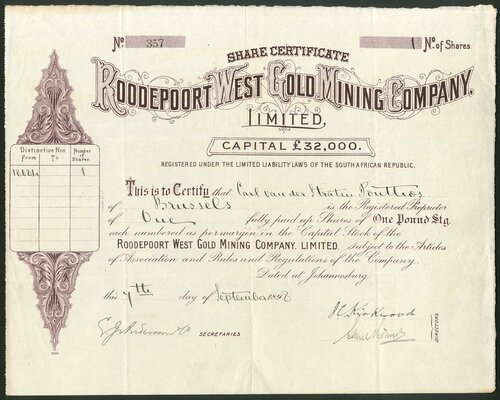 No. 357 1 Nº. of Shares
SHARE CERTIFICATE
ROODEPOORT WEST GOLD MINING COMPANY,
LIMITED,
CAPITAL £32,000.
REGISTERED UNDER THE LIMITED LIABILITY LAWS OF THE SOUTH AFRICAN REPUBLIC.
Distinctive Nos. Number of Shares
From To
1
This is to Certify that Carl van der Straten Ponthos
of Brussels is the Registered Proprietor
of One fully paid up Shares of One Pound Stg.
each numbered as per margin in the Capital Stock of the
ROODEPOORT WEST GOLD MINING COMPANY, LIMITED, subject to the Articles
of Association and Rules and Regulations of the Company.
Dated at Johannesburg
this 7th day of September 189
SECRETARIES
DIRECTORS